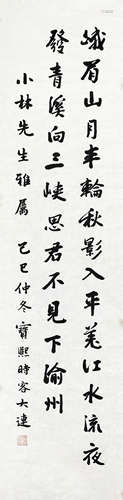 峨眉山月半輪秋影入平羌江水流夜
發青溪向三峽思君不見下渝州
小林先生雅屬 己巳仲冬寶熙時客大連